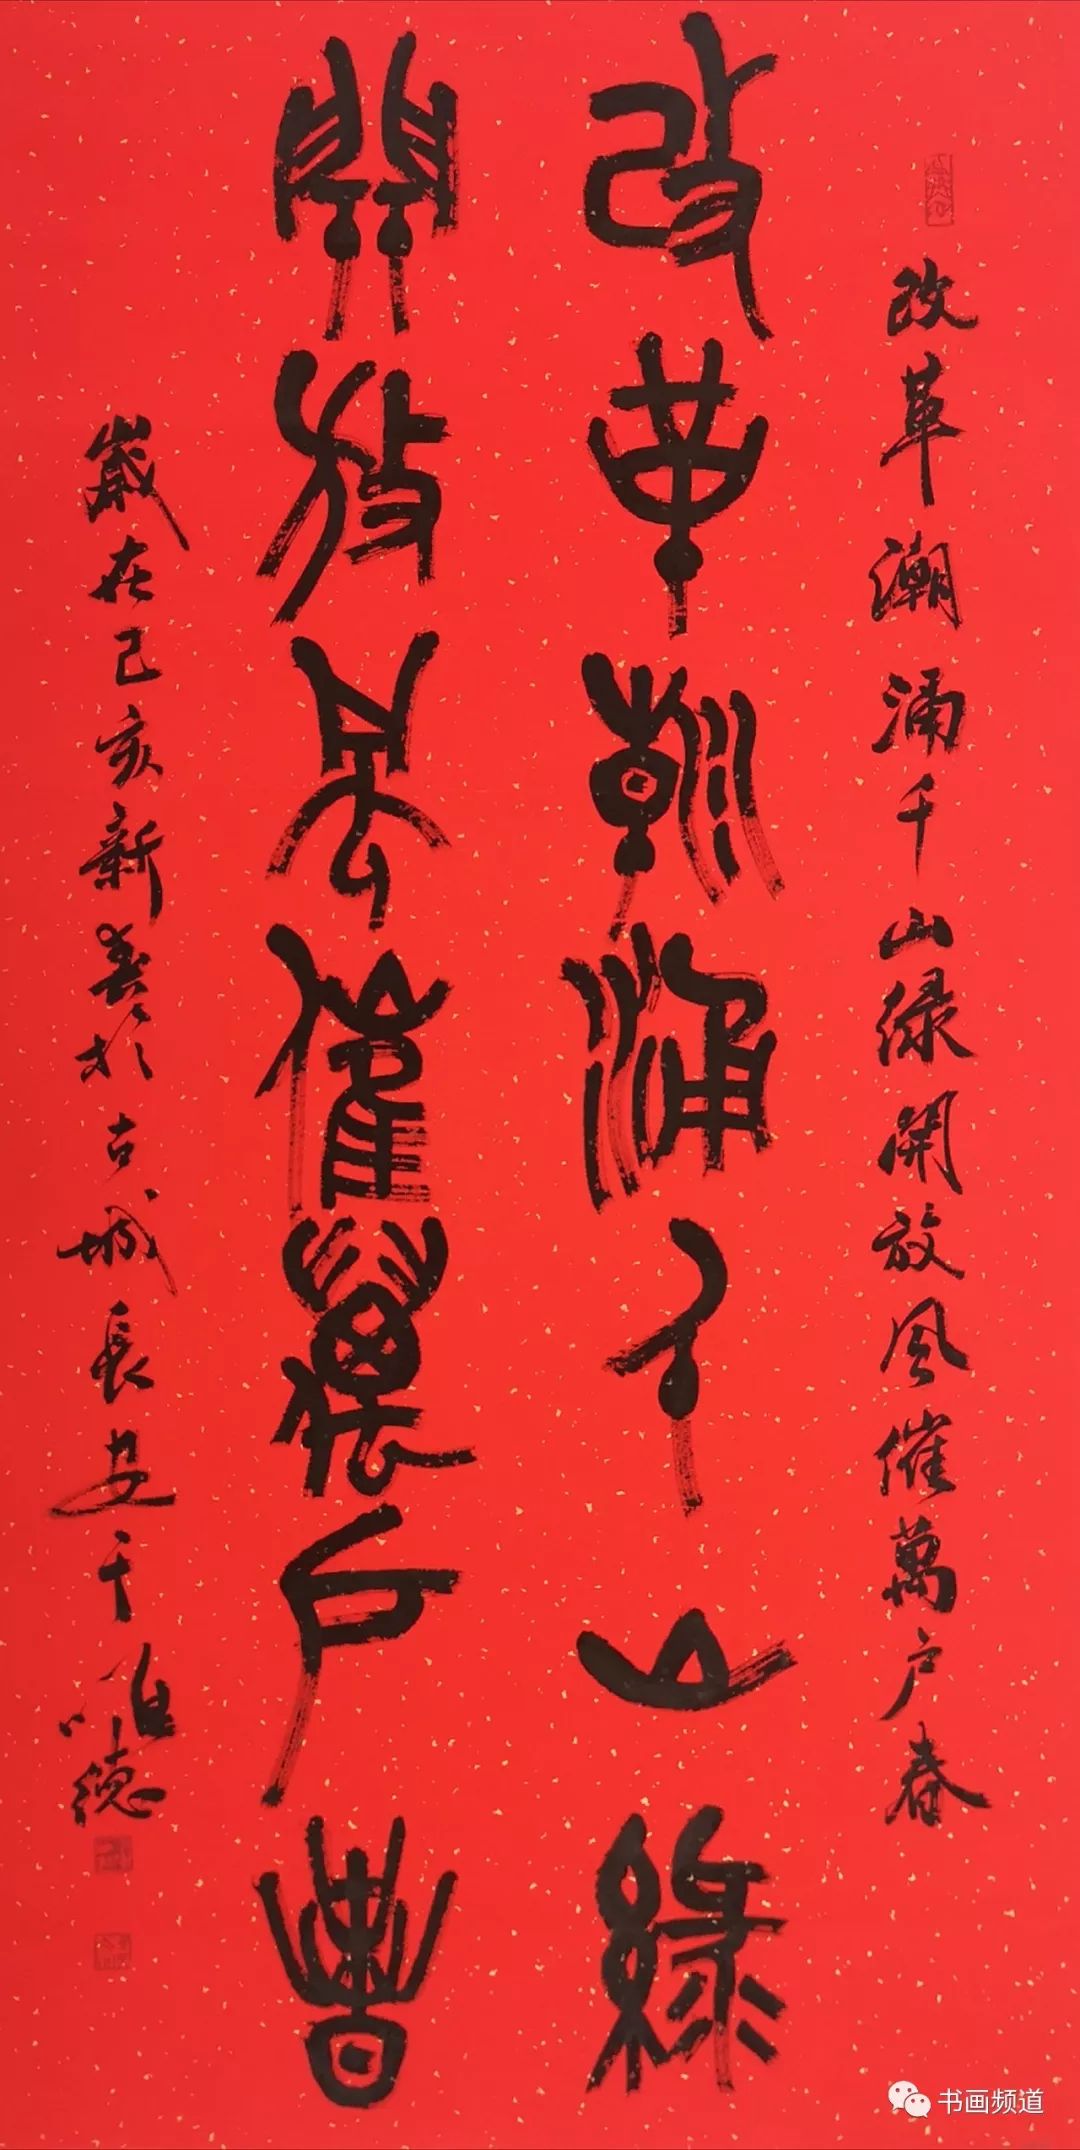 改革潮涌千山綠開放风催萬户春
改革潮涌千山綠
開放風催萬戶春
歲在己亥新春於古城長安于唯德
书画频道